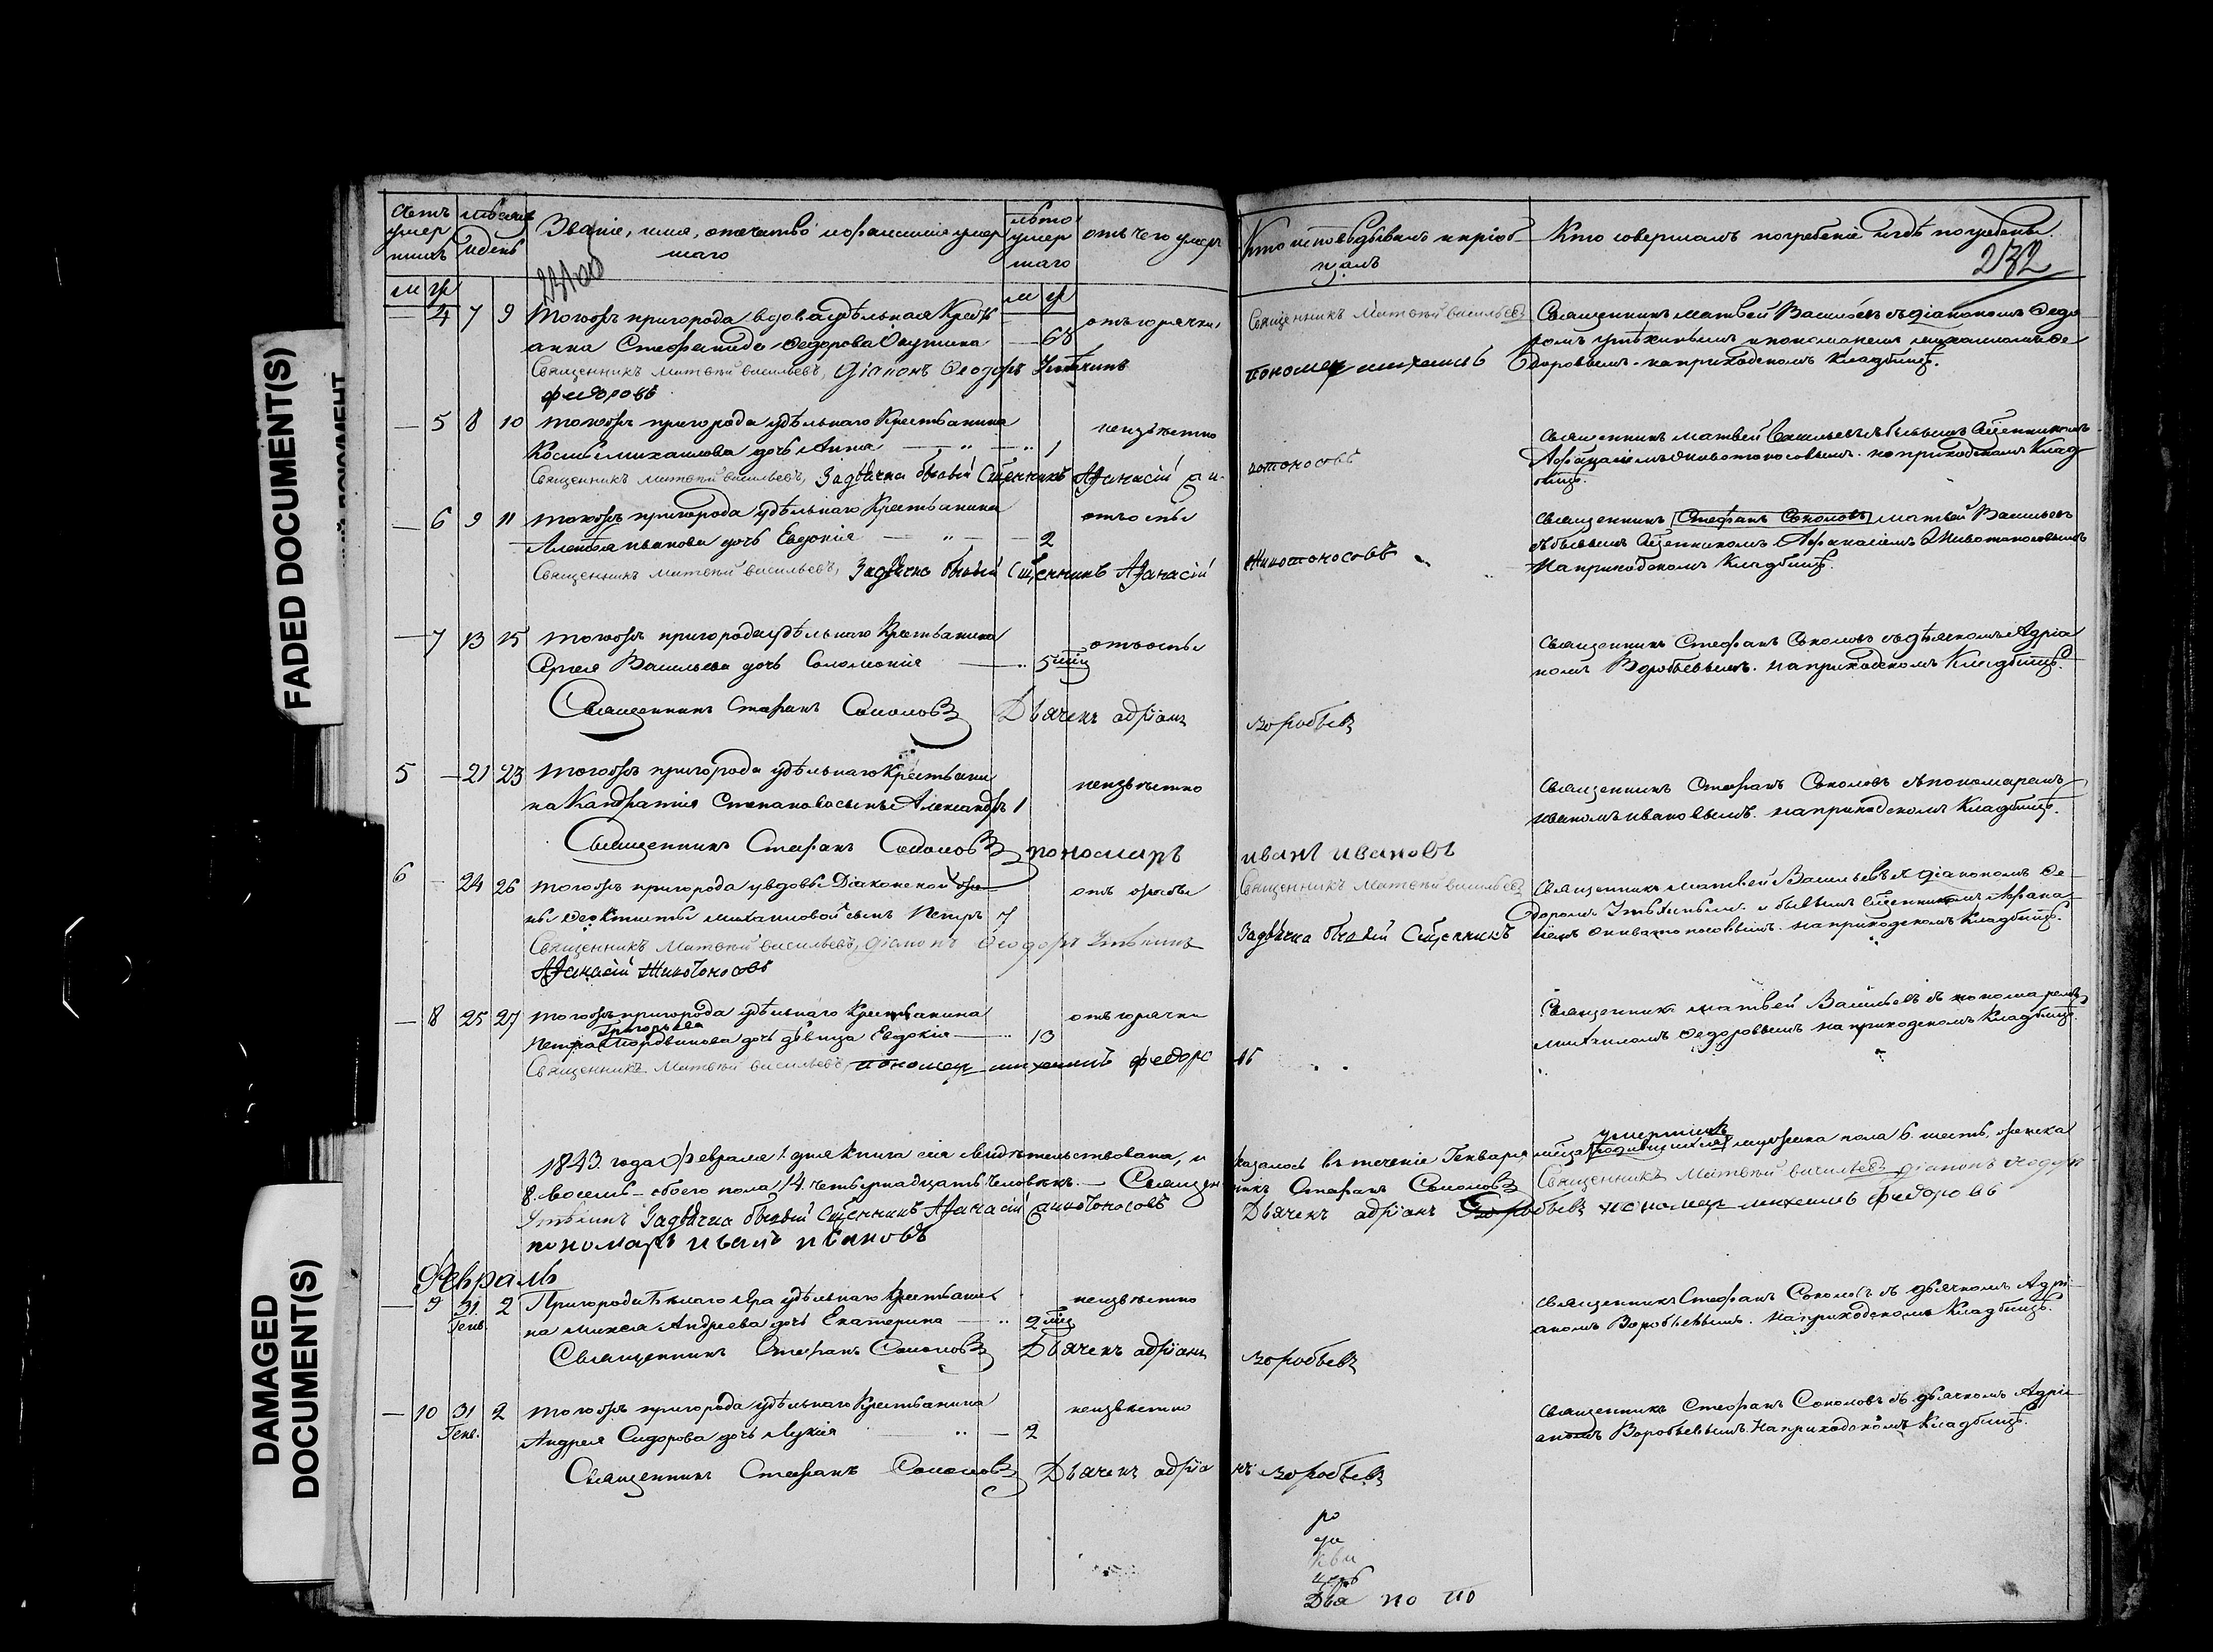 FADED DOCUMENT(S)
DAMAGED
DOCUMENT(S)
Счетъ умер шихъ
мѣсяцъ и день
Званіе, имя, отечество и фамилія умер
шаго
лѣто умер шаго
отъ чего умеръ
Кто исповѣдывалъ и пріоб
щалъ
Кто совершалъ погребеніе и гдѣ погребены.
232
м ж
м ж
— 4 7 9 Тогожъ пригорода вдова удѣльная Кресть
68
отъ горячки
анна Стефанида Федорова
Священникъ Матвѣй васильевъ, Діаконъ Феодоръ Утѣхинъ
федоровъ
Священникъ Матвѣй васильевъ
пономар михаилъ
Священникъ матвѣй Васильевъ съ діакономъ Федо
ромъ Утѣхинымъ и пономаремъ михаиломъ Фе
доровымъ. на приходскомъ кладбищѣ.
— 5 8 10 Тогожъ пригорода удѣльнаго Крестьянина
неизвѣстно
Косьмы михаилова дочь Анна — „ — 1
Священникъ матвѣй васильевъ, Задьячка бывый Сщенникъ Афанасій Жи
вотоносовъ
Священникъ матвѣй Васильевъ съ бывшимъ Сщенникомъ
Афанасіемъ Животоносовымъ. на приходскомъ Клад
бищѣ.
— 6 9 11 Тогожъ пригорода удѣльнаго Крестьянина
отъ оспы
Алексѣя иванова дочь Евдокія — „ — 2
Священникъ матвѣй васильевъ, Задьячка бывый Сщенникъ Афанасій
Животоносовъ
Священникъ Стефанъ Соколовъ матвѣй Васильевъ
съ бывшимъ Сщенникомъ Афанасіемъ Животоносовымъ
На приходскомъ Кладбищѣ.
— 7 13 15 Тогожъ пригорода удѣльнаго Крестьянина
отъ оспы
Сергея Васильева дочь Соломонія — 5 мцъ
Священникъ Стефанъ Соколовъ Дьячекъ адріанъ
воробьевъ
Священникъ Стефанъ Соколовъ съ дьячкомъ Адріа
номъ Воробьевымъ. На приходскомъ Кладбищѣ.
5 — 21 23 Тогожъ пригорода удѣльнаго Крестьяни
неизвѣстно
на Кандратія Степанова сынъ Александръ 1
Священникъ Стефанъ Соколовъ пономарь
иванъ ивановъ
Священникъ Стефанъ Соколовъ съ пономаремъ
иваномъ ивановымъ. на приходскомъ Кладбищѣ.
6 — 24 26 Тогожъ пригорода у вдовы Діаконской же
ны Феоктисты михаиловой сынъ Петръ 7
Священникъ Матвѣй васильевъ, діаконъ Феодоръ Утѣхинъ
Афанасій Животоносовъ
Священникъ Матвѣй васильевъ
Задьячка бывый Сщенникъ
Священникъ матвѣй Васильевъ съ діакономъ Фе
доромъ Утѣхинымъ и бывшимъ Сщенникомъ Афана
сіемъ Животоносовымъ. на приходскомъ Кладбищѣ.
— 8 25 27 Тогожъ пригорода удѣльнаго Крестьянина
отъ горячки
Григорьева
Петра Мордвинова дочь дѣвица Евдокія — 13
Священникъ Матвѣй васильевъ, пономар михаилъ федоро
въ
Священникъ матвѣй Васильевъ съ пономаремъ
михаиломъ Федоровымъ на приходскомъ Кладбищѣ.
1843 года Февраля 1 дня книга сія свидѣтельствована, и
казалось въ теченіе Генваря мѣсяца умершихъ мужеска пола 6. шесть, женска
8. восемь — обоего пола 14. четырнадцать человѣкъ. — Священ
никъ Стефанъ Соколовъ Священникъ Матвѣй васильевъ діаконъ Феодоръ
Утѣхинъ Задьячка бывый Сщенникъ Афанасій Животоносовъ
Дьячекъ адріанъ Воробьевъ пономар михаилъ федоровъ
пономарь иванъ ивановъ
Февраль
— 9 31 Генв. 2 удѣльнаго Крестьяни
неизвѣстно
на Андреева дочь Екатерина — 2 мцъ
Священникъ Стефанъ Соколовъ Дьячекъ адріанъ
воробьевъ
Священникъ Стефанъ Соколовъ съ дьячкомъ Адрі
аномъ Воробьевымъ. На приходскомъ Кладбищѣ.
— 10 31 Генв. 2 Тогожъ пригорода удѣльнаго Крестьянина
неизвѣстно
Андрея Сидорова дочь Лукія — 2
Священникъ Стефанъ Соколовъ Дьячекъ адріа
нъ воробьевъ
Священникъ Стефанъ Соколовъ съ дьячкомъ Адрі
аномъ Воробьевымъ. На приходскомъ Кладбищѣ.
по по